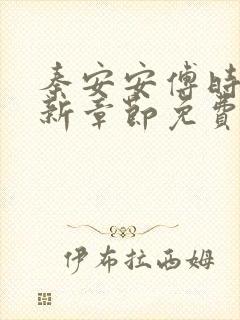 秦安安傅时
新章节免费
伊布拉西姆